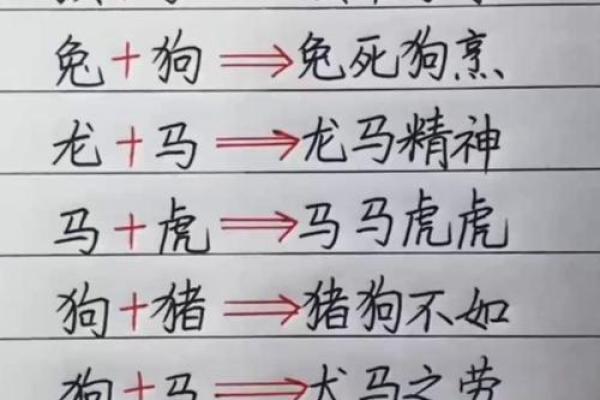 兔+狗⇒兔死狗烹
龙+马⇒龙马精神
马+虎⇒马马虎虎
狗+猪⇒猪狗不如
狗+马⇒犬马之劳